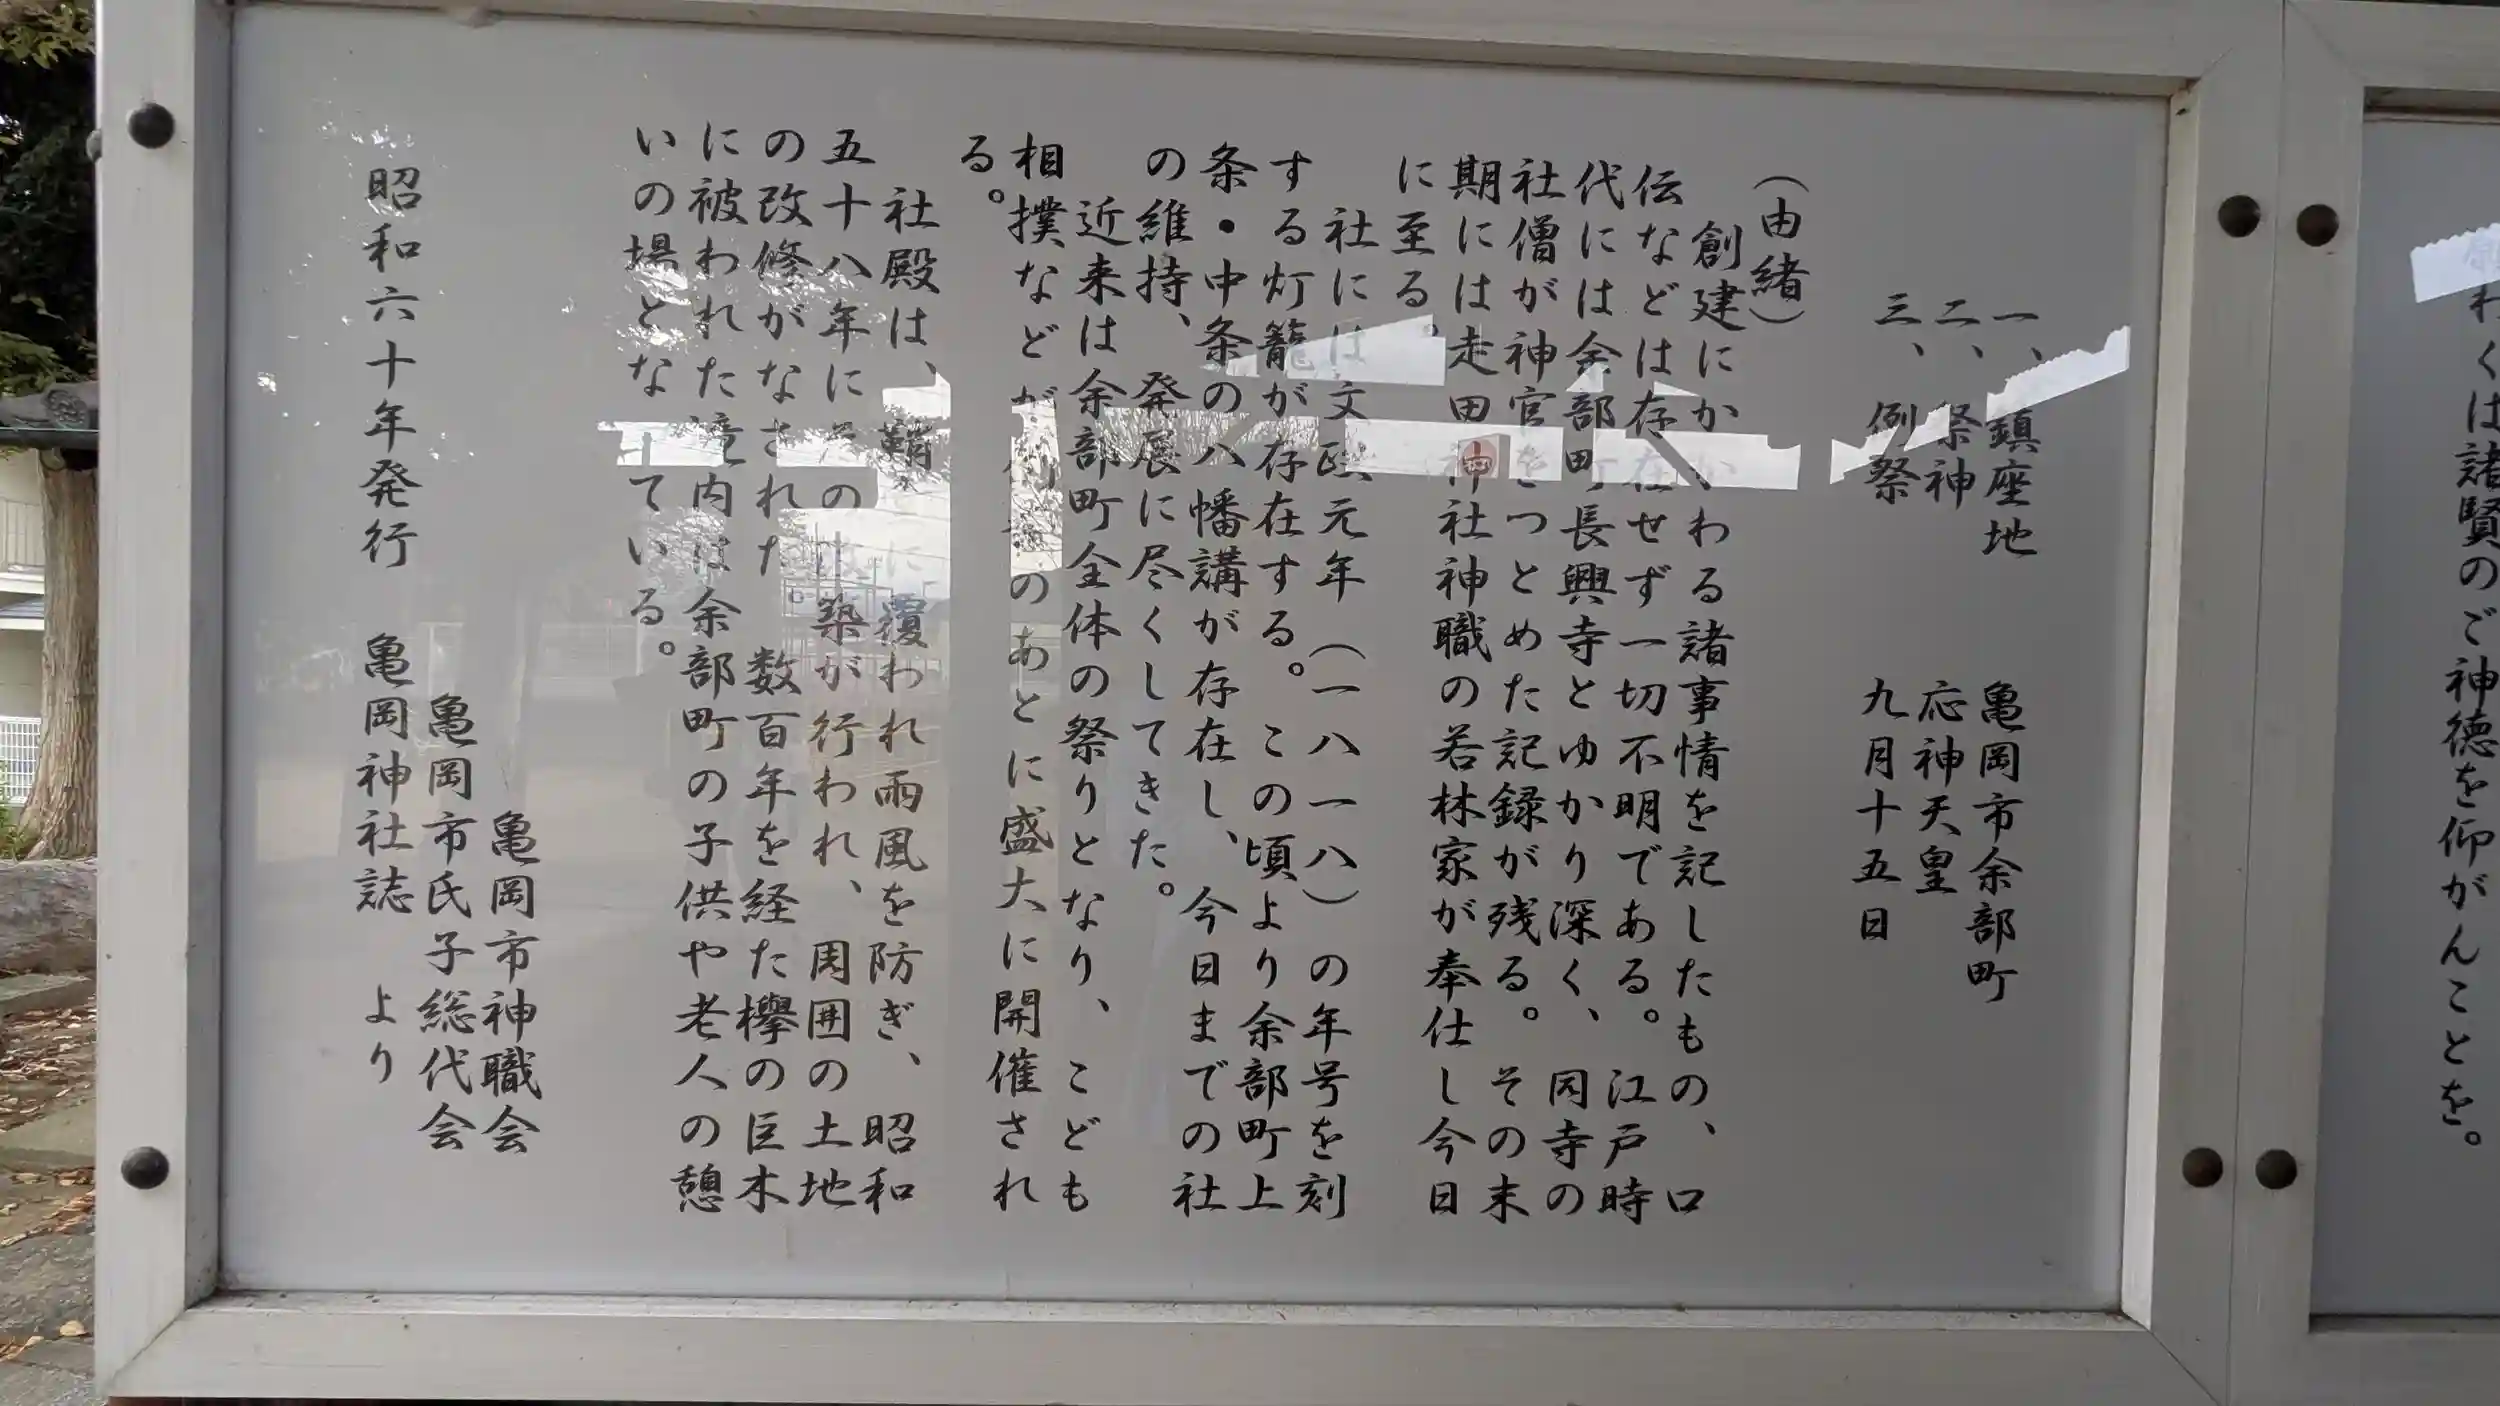 一、鎮座地　　亀岡市余部町
二、祭神　　　応神天皇
三、例祭　　　九月十五日
（由緒）
創建にかかわる諸事情を記したもの、口
伝などは存在せず一切不明である。江戸時
代には余部町長興寺とゆかり深く、同寺の
社僧が神官をつとめた記録が残る。その末
期には走田神社神職の若林家が奉仕し今日
に至る。
社には文政元年（一八一八）の年号を刻
する灯籠が存在する。この頃より余部町上
条・中条の八幡講が存在し、今日までの社
の維持、発展に尽くしてきた。
近来は余部町全体の祭りとなり、こども
相撲などがのあとに盛大に開催され
る。
社殿は、鞘に覆われ雨風を防ぎ、昭和
五十八年にその築が行われ、周囲の土地
の改修がなされた　数百年を経た欅の巨木
に被われた境内は余部町の子供や老人の憩
いの場となっている。
亀岡市神職会
亀岡市氏子総代会
昭和六十年発行　亀岡神社誌　より
くは諸賢のご神徳を仰がんことを。